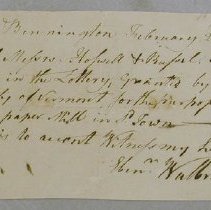 Bennington February
Messrs. Haswell & Russel
in the Lottery, Granted by
of Vermont for the Purpo
paper Mill in Sd. Town
is to accout Witness my
Ebenr. Walbr